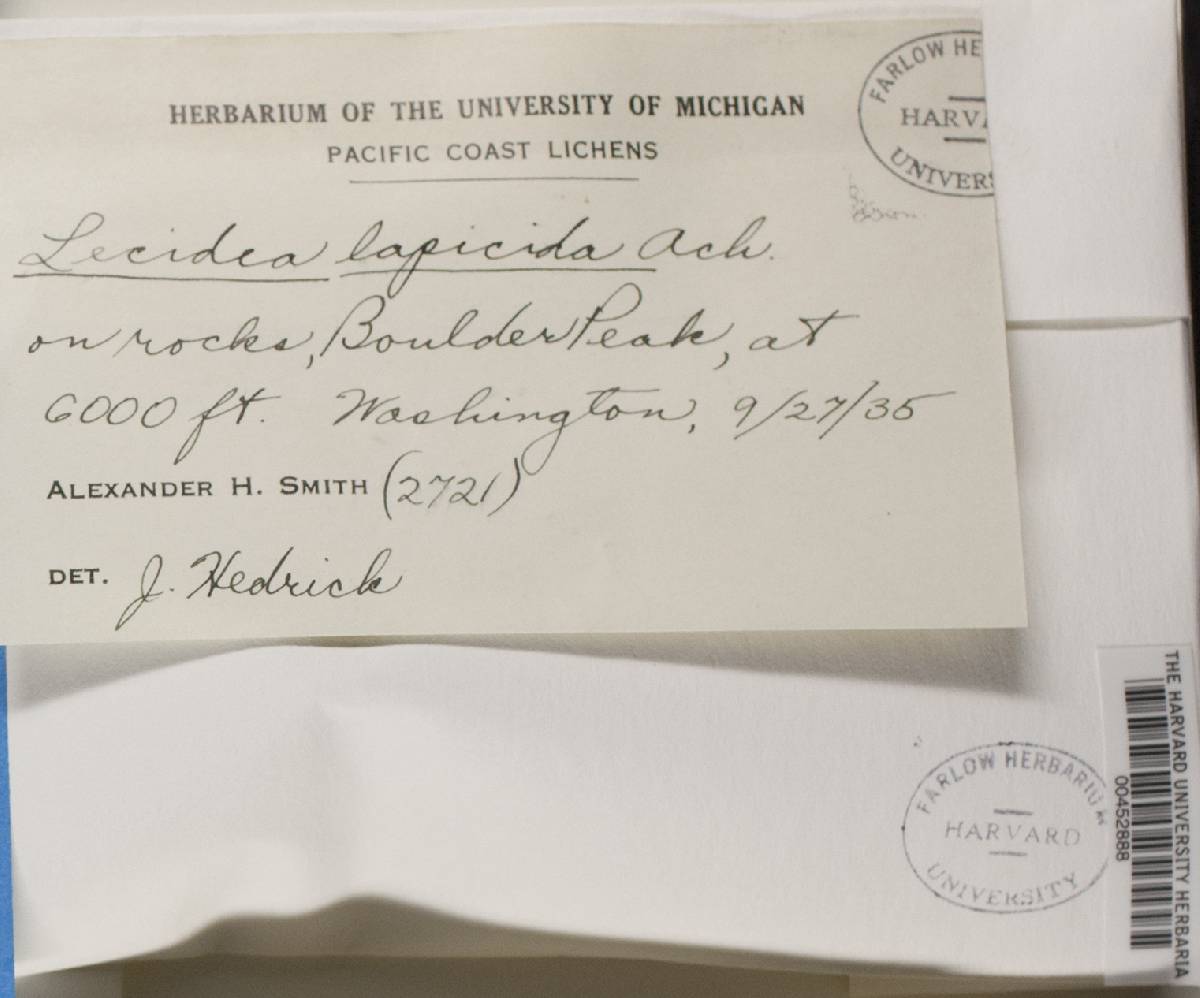 HERBARIUM OF THE UNIVERSITY OF MICHIGAN
PACIFIC COAST LICHENS
FARLOW HE
HARVA
UNIVERS
Lecidea lapicida Ach.
on rocks, Boulder Peak, at
6000 ft. Washington, 9/27/35
ALEXANDER H. SMITH (2721)
DET. J. Hedrick
FARLOW HERBARIUM
HARVARD
UNIVERSITY
THE HARVARD UNIVERSITY HERBARIA
00452888